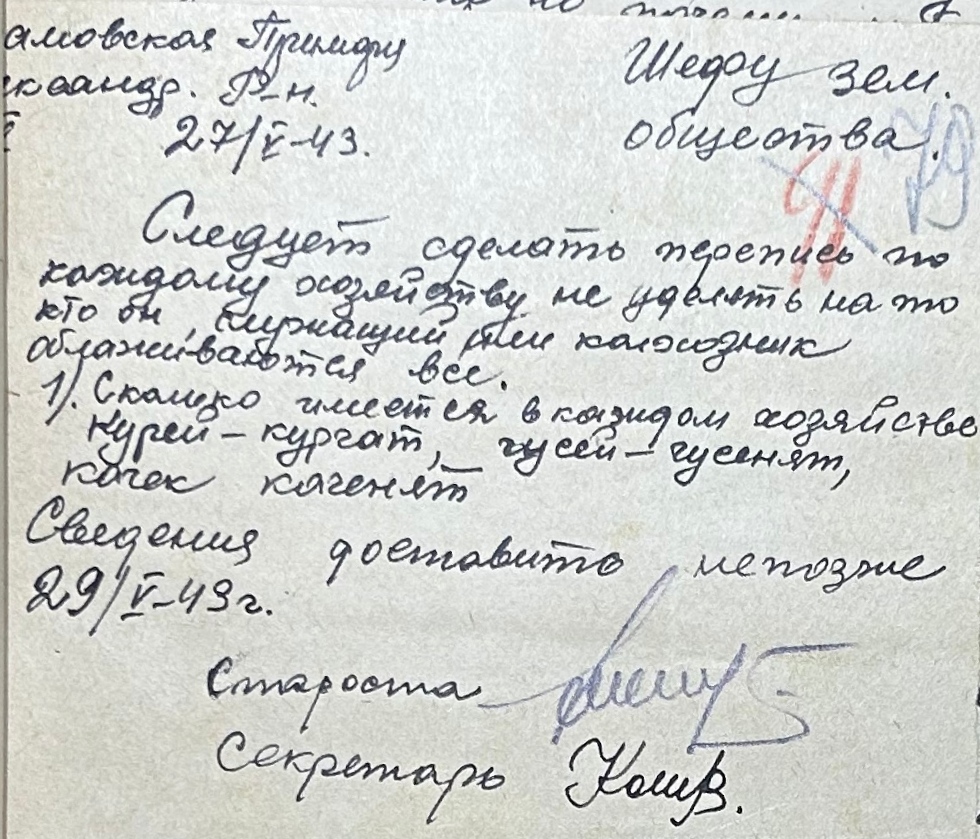 амовская
Р-н.
27/V-43.
Шефу зем.
общества.
79
Следует сделать перепись по
каждому хозяйству не уделять на то
кто он, служащий или колхозник
облаживаются все.
1). Сколько имеется в каждом хозяйстве
Курей – курчат, гусей – гусенят,
качек каченят
Сведения доставить непозже
29/V-43 г.
Староста
Секретарь